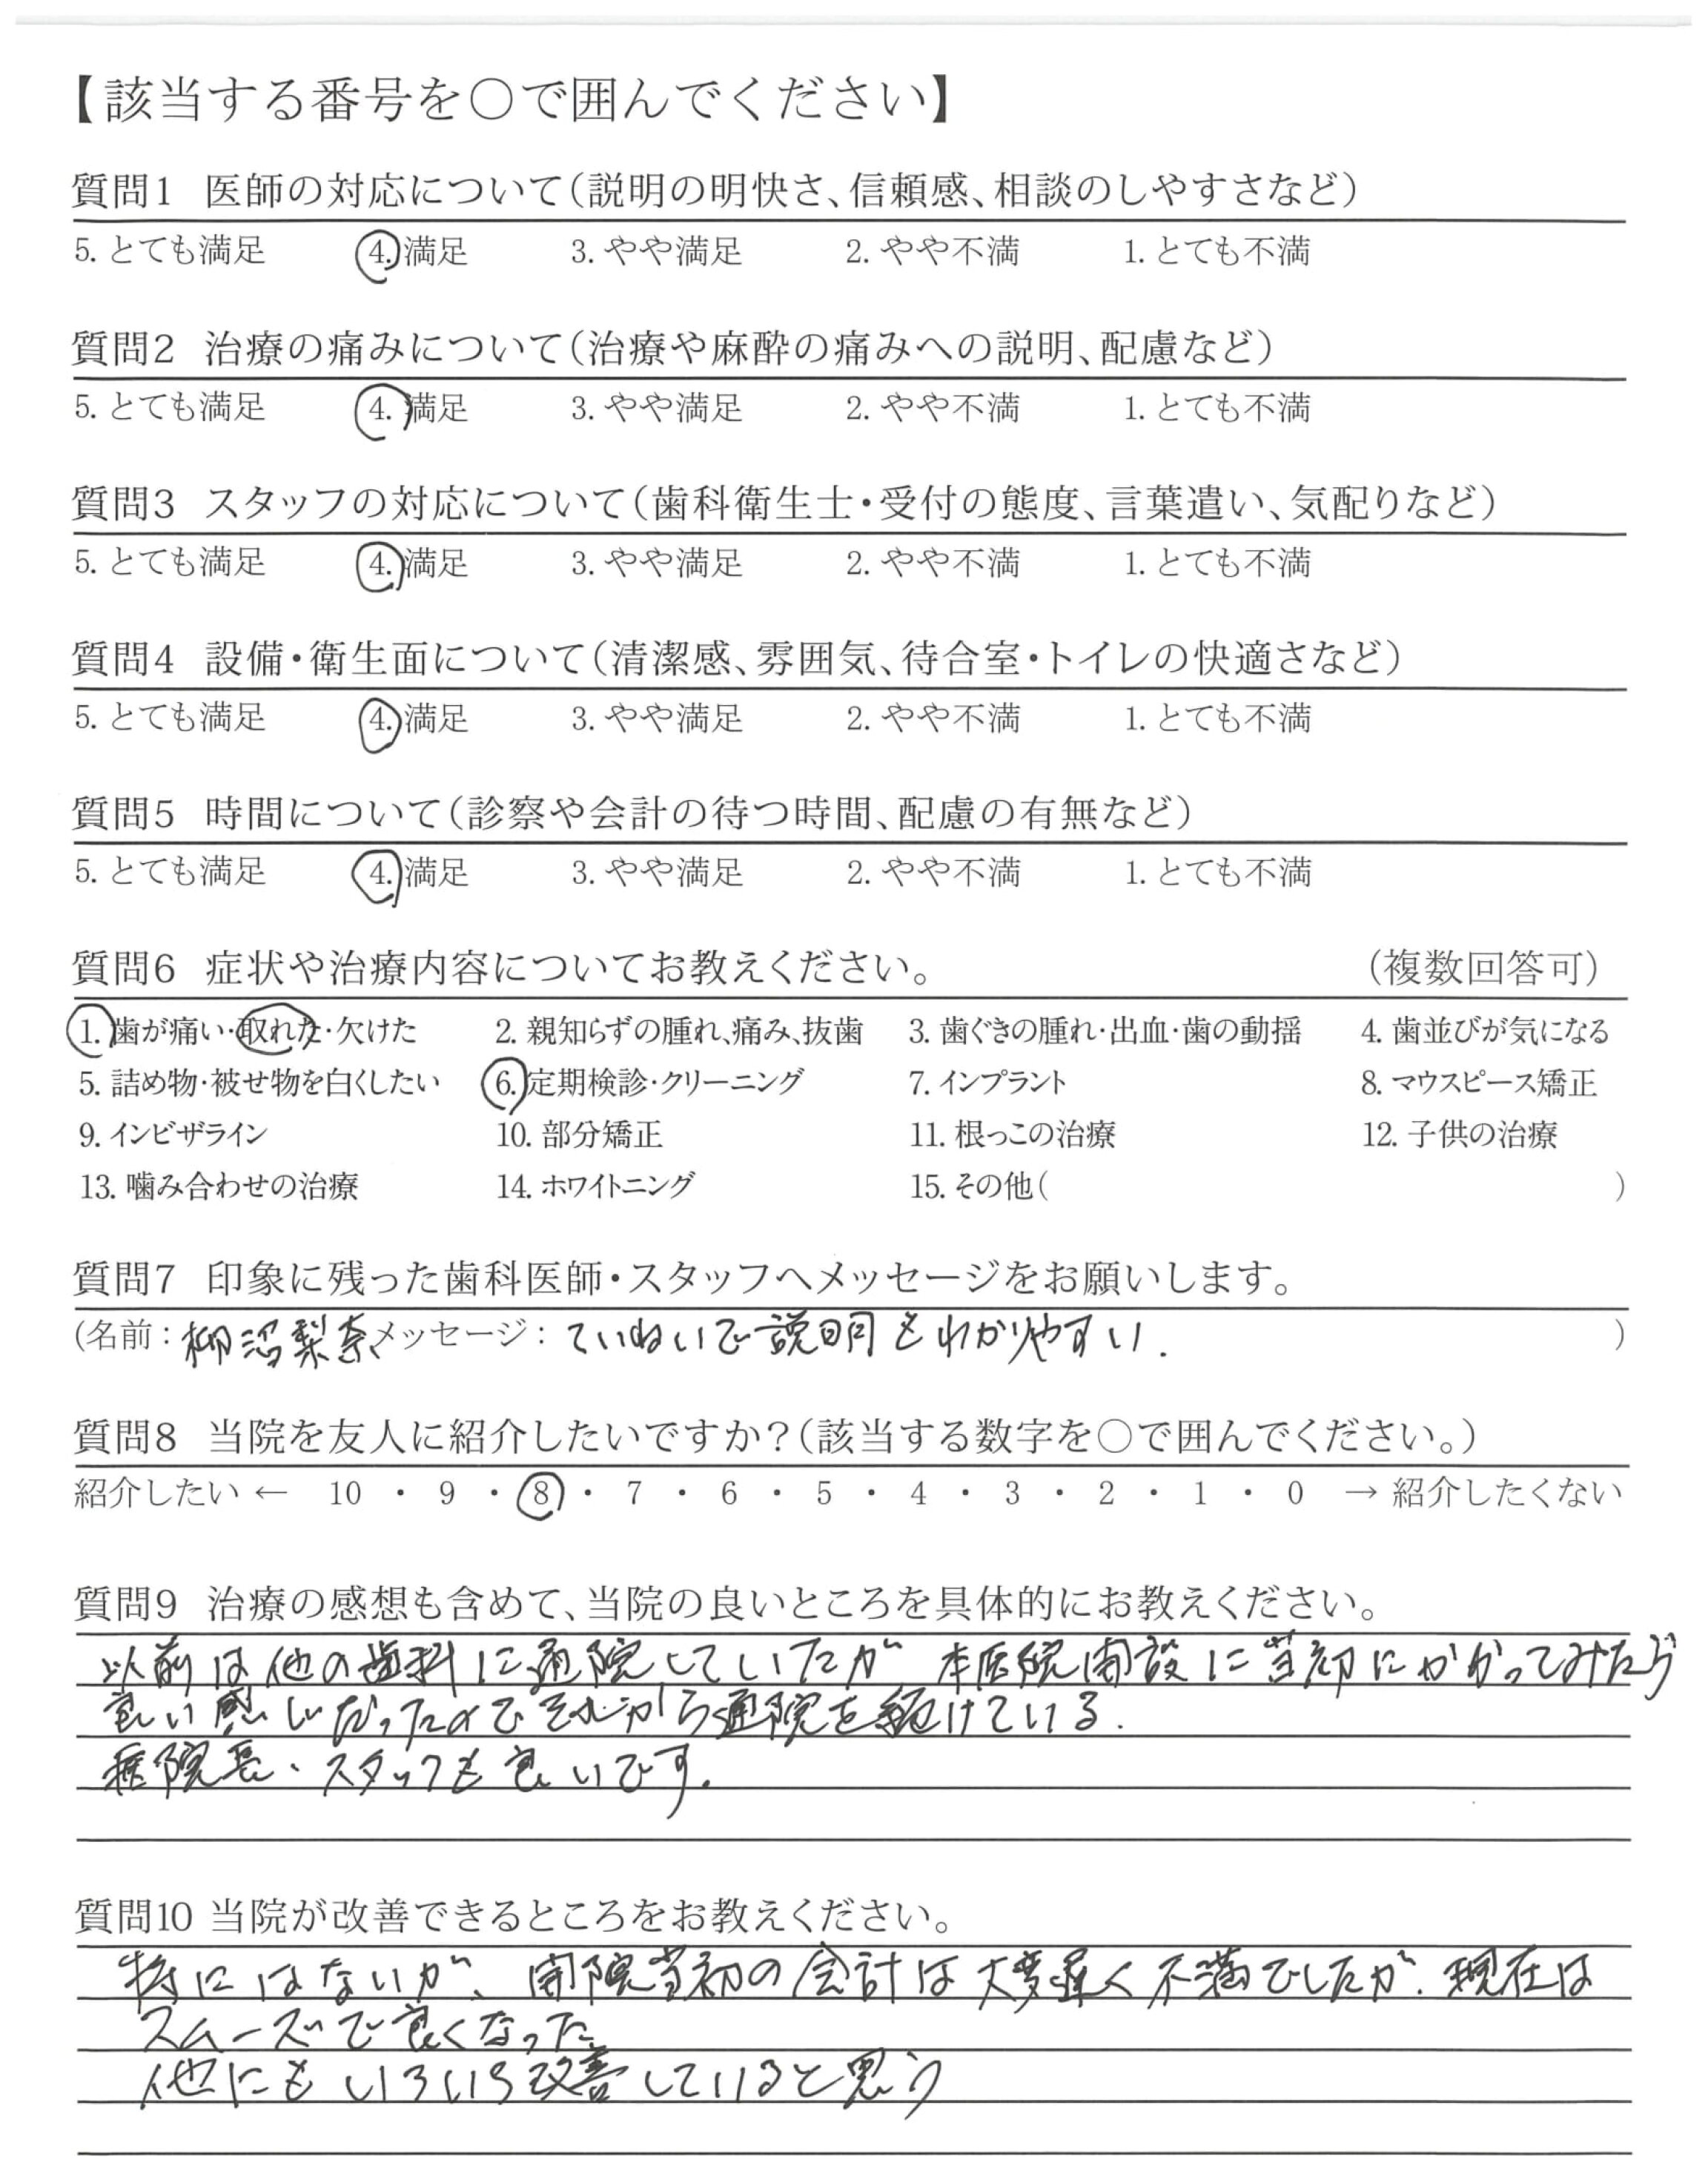 【該当する番号を〇で囲んでください】
質問1 医師の対応について(説明の明快さ、信頼感、相談のしやすさなど)
5. とても満足 4. 満足 3. やや満足 2. やや不満 1. とても不満
質問2 治療の痛みについて(治療や麻酔の痛みへの説明、配慮など)
5. とても満足 4. 満足 3. やや満足 2. やや不満 1. とても不満
質問3 スタッフの対応について(歯科衛生士・受付の態度、言葉遣い、気配りなど)
5. とても満足 4. 満足 3. やや満足 2. やや不満 1. とても不満
質問4 設備・衛生面について(清潔感、雰囲気、待合室・トイレの快適さなど)
5. とても満足 4. 満足 3. やや満足 2. やや不満 1. とても不満
質問5 時間について(診察や会計の待つ時間、配慮の有無など)
5. とても満足 4. 満足 3. やや満足 2. やや不満 1. とても不満
質問6 症状や治療内容についてお教えください。 (複数回答可)
1. 歯が痛い・取れた・欠けた 2. 親知らずの腫れ、痛み、抜歯 3. 歯ぐきの腫れ・出血・歯の動揺 4. 歯並びが気になる
5. 詰め物・被せ物を白くしたい 6. 定期検診・クリーニング 7. インプラント 8. マウスピース矯正
9. インビザライン 10. 部分矯正 11. 根っこの治療 12. 子供の治療
13. 噛み合わせの治療 14. ホワイトニング 15. その他( )
質問7 印象に残った歯科医師・スタッフへメッセージをお願いします。
(名前: 柳沼梨奈 メッセージ: ていねいで説明もわかりやすい. )
質問8 当院を友人に紹介したいですか?(該当する数字を〇で囲んでください。)
紹介したい ← 10 ・ 9 ・ 8 ・ 7 ・ 6 ・ 5 ・ 4 ・ 3 ・ 2 ・ 1 ・ 0 → 紹介したくない
質問9 治療の感想も含めて、当院の良いところを具体的にお教えください。
以前は他の歯科に通院していたが 本医院開設に当初にかかってみたら
良い感じだったのでそれから通院を続けている.
医院長、スタッフも良いです.
質問10 当院が改善できるところをお教えください。
特にはないが、開院当初の会計は大変遅く不満でしたが、現在は
スムーズで良くなった
他にもいろいろ改善していると思う